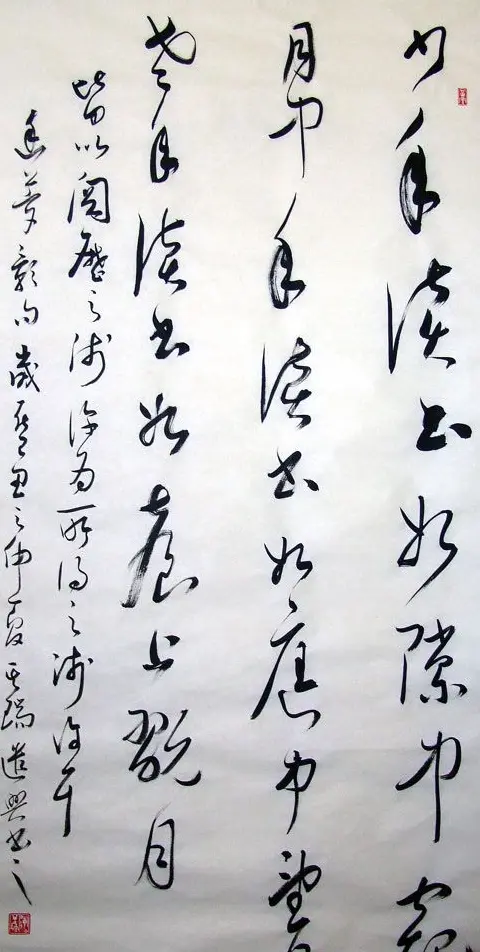 少年讀書如隙中窺
月中年讀書如庭中望月
老年讀書如臺上翫月
皆以閱歷之淺深為所得之淺深耳
幽夢影句歲丑之仲夏道興書之